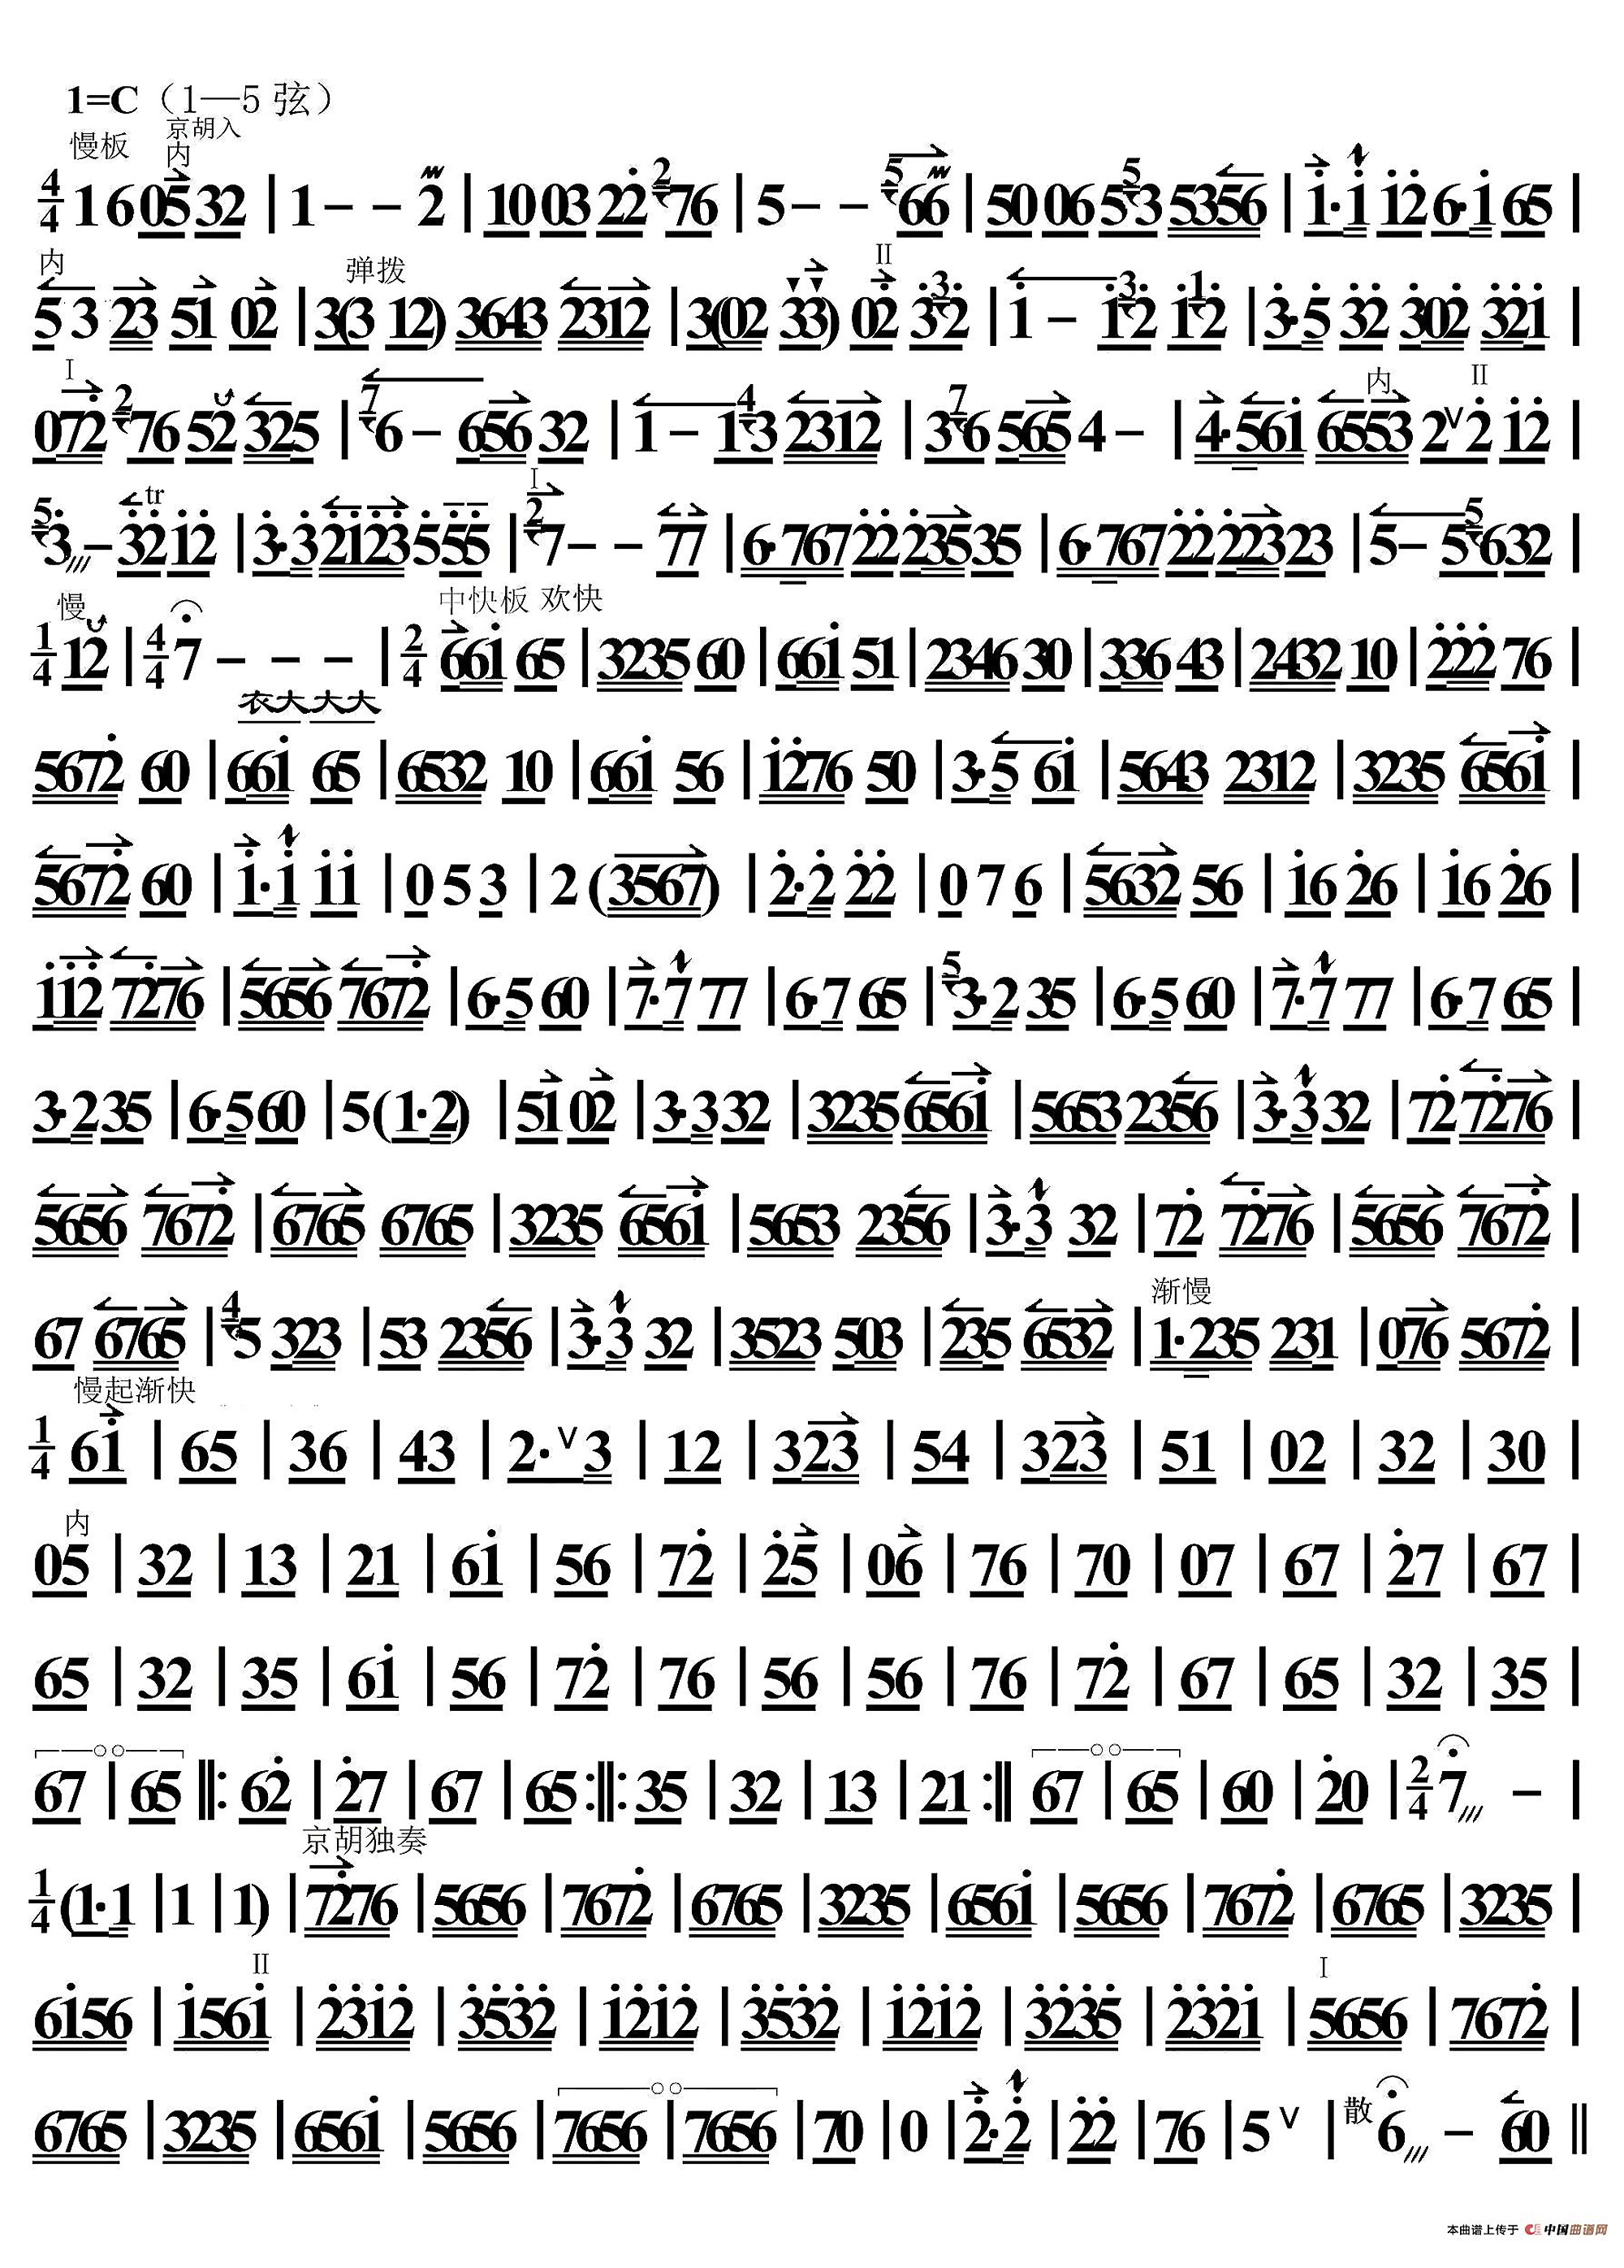 1=C（1—5 弦）
慢板 京胡入
内
4/4 1 6 05 32 | 1 - - 2 | 10 03 22 2 76 | 5 - - 5 66 | 50 06 5 5 3 5356 | 1·1 12 6·1 65 |
内 弹拨 II
5 3 23 51 02 | 3(3 12) 3643 2312 | 3(02 33) 02 3 3 2 | 1 - 1 3 2 1 1 2 | 3·5 32 302 321 |
I 内 II
072 2 76 52 325 | 7 6 - 656 32 | 1 - 1 4 3 2312 | 3 7 6 565 4 - | 4·561 6553 2 V 2 12 |
tr I
5 3 - 32 12 | 3·3 2123 5 55 | 2 7 - - 77 | 6·767 22 235 35 | 6·767 22 223 23 | 5 - 5 5 6 32 |
慢 中快板 欢快
1/4 12 | 4/4 7 - - - | 2/4 661 65 | 3235 60 | 661 51 | 2346 30 | 336 43 | 2432 10 | 222 76 |
衣大大大
5672 60 | 661 65 | 6532 10 | 661 56 | 1276 50 | 3·5 61 | 5643 2312 | 3235 6561 |
5672 60 | 1·1 11 | 0 5 3 | 2 (3567) | 2·2 22 | 0 7 6 | 5632 56 | 16 26 | 16 26 |
112 7276 | 5656 7672 | 6·5 60 | 7·7 77 | 6·7 65 | 5 3·2 35 | 6·5 60 | 7·7 77 | 6·7 65 |
3·2 35 | 6·5 60 | 5 (1·2) | 51 02 | 3·3 32 | 3235 6561 | 5653 2356 | 3·3 32 | 72 7276 |
5656 7672 | 6765 6765 | 3235 6561 | 5653 2356 | 3·3 32 | 72 7276 | 5656 7672 |
渐慢
67 6765 | 4 5 323 | 53 2356 | 3·3 32 | 3523 503 | 235 6532 | 1·235 231 | 076 5672 |
慢起渐快
1/4 61 | 65 | 36 | 43 | 2· V 3 | 12 | 323 | 54 | 323 | 51 | 02 | 32 | 30 |
内
05 | 32 | 13 | 21 | 61 | 56 | 72 | 25 | 06 | 76 | 70 | 07 | 67 | 27 | 67 |
65 | 32 | 35 | 61 | 56 | 72 | 76 | 56 | 56 | 76 | 72 | 67 | 65 | 32 | 35 |
67 | 65 ‖: 62 | 27 | 67 | 65 :‖: 35 | 32 | 13 | 21 :‖ 67 | 65 | 60 | 20 | 2/4 7 - |
京胡独奏
1/4 (1·1 | 1 | 1) | 7276 | 5656 | 7672 | 6765 | 3235 | 6561 | 5656 | 7672 | 6765 | 3235 |
II I
6156 | 1561 | 2312 | 3532 | 1212 | 3532 | 1212 | 3235 | 2321 | 5656 | 7672 |
6765 | 3235 | 6561 | 5656 | 7656 | 7656 | 70 | 0 | 2·2 | 22 | 76 | 5 V | 散 6 - 60 ‖
本曲谱上传于 中国曲谱网